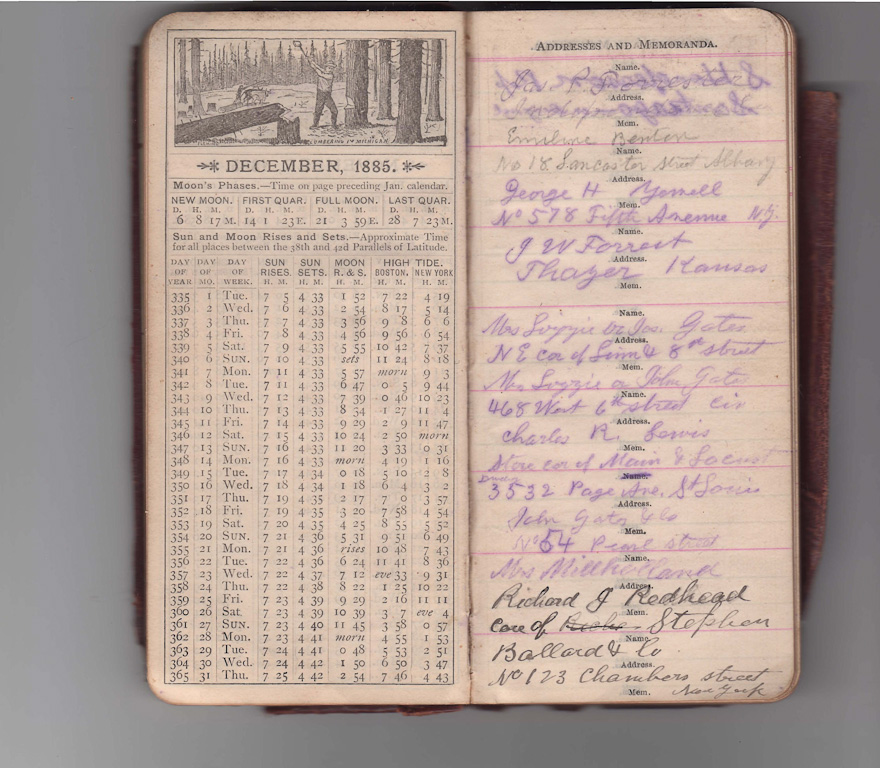 LUMBERING IN MICHIGAN
DECEMBER, 1885.
Moon's Phases.—Time on page preceding Jan. calendar.
NEW MOON. FIRST QUAR. FULL MOON. LAST QUAR.
D. H. M. D. H. M. D. H. M. D. H. M.
6 8 17 M. 14 1 23 E. 21 3 59 E. 28 7 23 M.
Sun and Moon Rises and Sets.—Approximate Time
for all places between the 38th and 42d Parallels of Latitude.
DAY DAY DAY SUN SUN MOON HIGH TIDE.
OF OF OF RISES. SETS. R. & S. BOSTON. NEW YORK
YEAR MO. WEEK. H. M. H. M. H. M. H. M. H. M.
335 1 Tue. 7 5 4 33 1 52 7 22 4 19
336 2 Wed. 7 6 4 33 2 54 8 17 5 14
337 3 Thu. 7 7 4 33 3 56 9 8 6 6
338 4 Fri. 7 8 4 33 4 56 9 56 6 54
339 5 Sat. 7 9 4 33 5 55 10 42 7 37
340 6 SUN. 7 10 4 33 sets 11 24 8 18
341 7 Mon. 7 11 4 33 5 57 morn 9 3
342 8 Tue. 7 11 4 33 6 47 0 5 9 44
343 9 Wed. 7 12 4 33 7 39 0 46 10 23
344 10 Thu. 7 13 4 33 8 34 1 27 11 4
345 11 Fri. 7 14 4 33 9 29 2 9 11 47
346 12 Sat. 7 15 4 33 10 24 2 50 morn
347 13 SUN. 7 16 4 33 11 20 3 33 0 31
348 14 Mon. 7 16 4 33 morn 4 19 1 16
349 15 Tue. 7 17 4 34 0 18 5 10 2 8
350 16 Wed. 7 18 4 34 1 18 6 4 3 2
351 17 Thu. 7 19 4 35 2 17 7 0 3 57
352 18 Fri. 7 19 4 35 3 20 7 58 4 54
353 19 Sat. 7 20 4 35 4 25 8 55 5 52
354 20 SUN. 7 21 4 36 5 31 9 51 6 49
355 21 Mon. 7 21 4 36 rises 10 48 7 43
356 22 Tue. 7 22 4 36 6 24 11 41 8 36
357 23 Wed. 7 22 4 37 7 12 eve 33 9 31
358 24 Thu. 7 22 4 38 8 22 1 25 10 22
359 25 Fri. 7 23 4 39 9 29 2 16 11 11
360 26 Sat. 7 23 4 39 10 39 3 7 eve 4
361 27 SUN. 7 23 4 40 11 45 3 58 0 57
362 28 Mon. 7 23 4 41 morn 4 55 1 53
363 29 Tue. 7 24 4 41 0 48 5 53 2 51
364 30 Wed. 7 24 4 42 1 50 6 50 3 47
365 31 Thu. 7 25 4 42 2 54 7 46 4 43
ADDRESSES AND MEMORANDA.
Name.
Address.
Mem.
Emiline Benton
Name.
No 18 Lancaster street Albany
Address.
George H Yewell
Mem.
No 578 Fifth Avenue N.Y.
Name.
J W Forrest
Address.
Thayer Kansas
Mem.
Name.
Mrs Lizzie or Jos. Gates
Address.
N E cor of Linn & 8th street
Mem.
Mrs Lizzie or John Gates
Name.
468 West 6th street Cin
Address.
Charles R. Lewis
Mem.
Store cor of Main & Locust
Name.
3532 Page Ave. St Louis
Address.
John Gates & Co
Mem.
No 54 Pearl street
Name.
Mrs Millholland
Address.
Richard J Redhead
Mem.
Care of Stephen
Name.
Ballard & Co
Address.
No 123 Chambers street
Mem.
New York